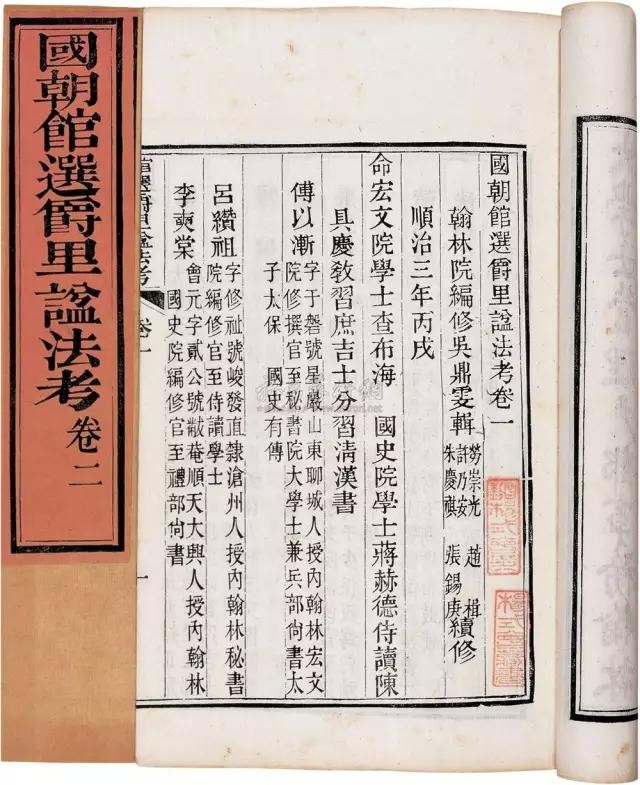 國朝館選爵里諡法考 卷二
國朝館選爵里諡法考卷一
翰林院編修吳鼎雯輯 勞崇光 許乃安 朱慶祺 趙楫 張錫庚 續修
順治三年丙戌
命宏文院學士查布海 國史院學士蔣赫德侍讀陳
具慶敎習庶吉士分習清漢書
傅以漸 字于磐號星巖山東聊城人授內翰林宏文
院修撰官至秘書院大學士兼兵部尙書太
子太保 國史有傳
呂纘祖 字修祉號峻發直隸滄州人授內翰林秘書
院編修官至侍讀學士
李奭棠 會元字貳公號黻菴順天大興人授內翰林
國史院編修官至禮部尙書
館選爵里諡法考 卷一
一